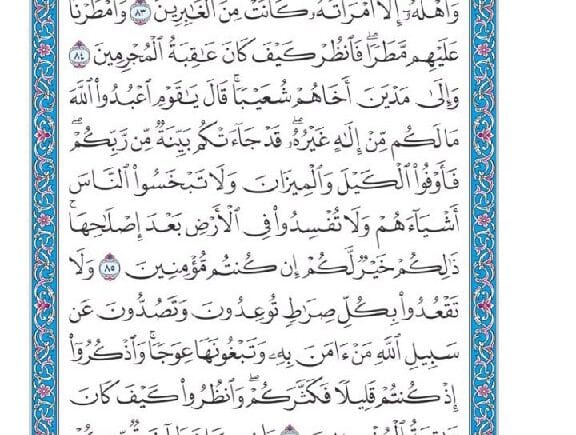 وَأَهْلَهُۥٓ إِلَّا ٱمْرَأَتَهُۥ كَانَتْ مِنَ ٱلْغَٰبِرِينَ ٨٣ وَأَمْطَرْنَا
عَلَيْهِم مَّطَرًاۖ فَٱنظُرْ كَيْفَ كَانَ عَٰقِبَةُ ٱلْمُجْرِمِينَ ٨٤
وَإِلَىٰ مَدْيَنَ أَخَاهُمْ شُعَيْبًاۚ قَالَ يَٰقَوْمِ ٱعْبُدُوا۟ ٱللَّهَ
مَا لَكُم مِّنْ إِلَٰهٍ غَيْرُهُۥۖ قَدْ جَآءَتْكُم بَيِّنَةٌ مِّن رَّبِّكُمْۖ
فَأَوْفُوا۟ ٱلْكَيْلَ وَٱلْمِيزَانَ وَلَا تَبْخَسُوا۟ ٱلنَّاسَ
أَشْيَآءَهُمْ وَلَا تُفْسِدُوا۟ فِى ٱلْأَرْضِ بَعْدَ إِصْلَٰحِهَاۚ
ذَٰلِكُمْ خَيْرٌ لَّكُمْ إِن كُنتُم مُّؤْمِنِينَ ٨٥ وَلَا
تَقْعُدُوا۟ بِكُلِّ صِرَٰطٍ تُوعِدُونَ وَتَصُدُّونَ عَن
سَبِيلِ ٱللَّهِ مَنْ ءَامَنَ بِهِۦ وَتَبْغُونَهَا عِوَجًاۚ وَٱذْكُرُوٓا۟
إِذْ كُنتُمْ قَلِيلًا فَكَثَّرَكُمْۖ وَٱنظُرُوا۟ كَيْفَ كَانَ